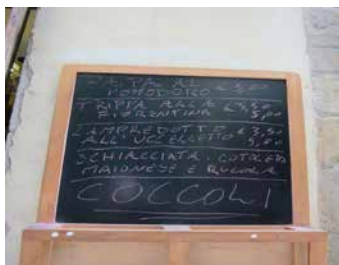 PAPPA AL
POMODORO € 5,00
TRIPPA ALLA € 3,50
FIORENTINA 5,00
LAMPREDOTTO € 3,50
ALL'UCCELLETTO 5,00
SCHIACCIATA COTOLETTA
MAIONESE E RUCOLA
COCCOLI